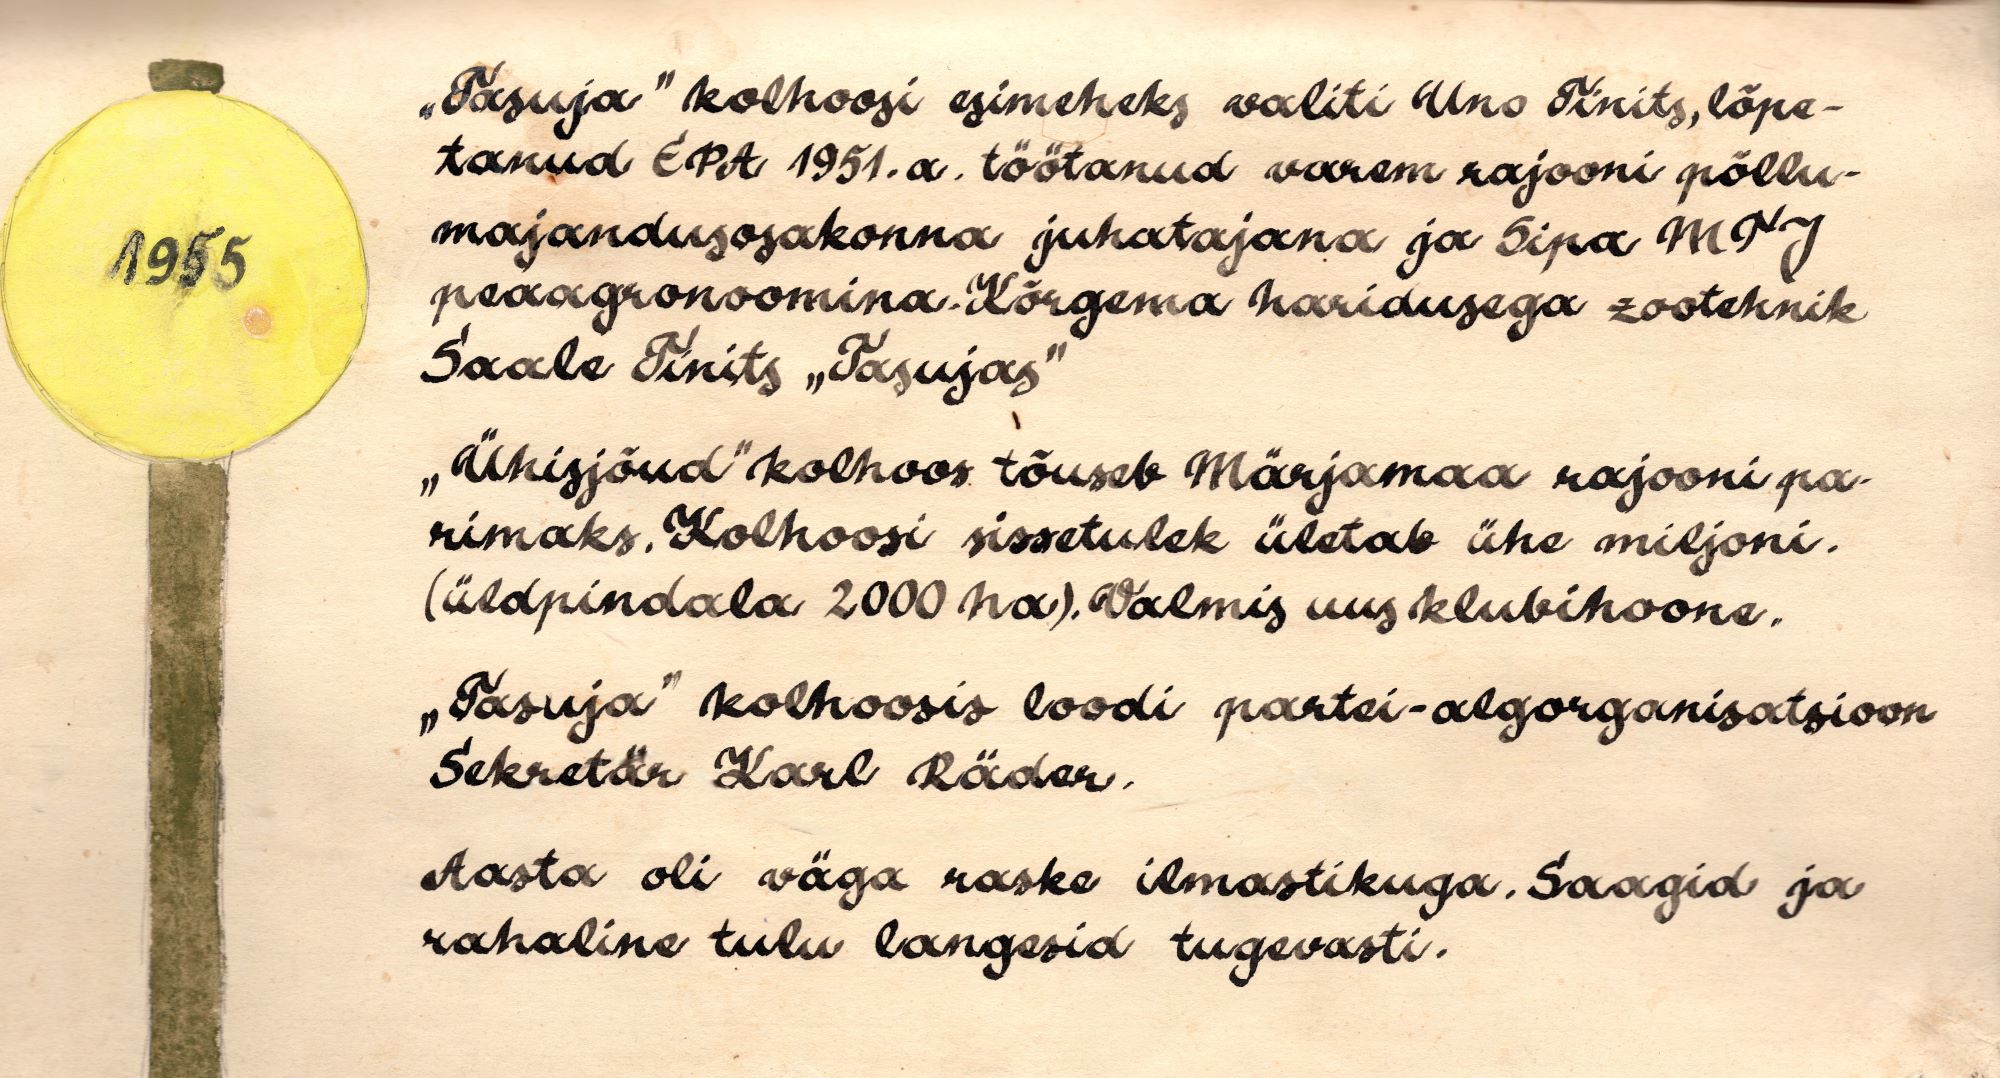 1955
„Tasuja” kolhoosi esimeheks valiti Uno Tinits, lõpe-
tanud EPA 1951.a. töötanud varem rajooni põllu-
majandusosakonna juhatajana ja Sipa MTJ
peaagronoomina. Kõrgema haridusega zootehnik
Saale Tinits „Tasujas”
„Ühisjõud” kolhoos tõuseb Märjamaa rajooni pa-
rimaks. Kolhoosi sissetulek ületab ühe miljoni.
(üldpindala 2000 ha). Valmis uus klubihoone.
„Tasuja” kolhoosis loodi partei-algorganisatsioon
Sekretär Karl Räder.
Aasta oli väga raske ilmastikuga. Saagid ja
rahaline tulu langesid tugevasti.